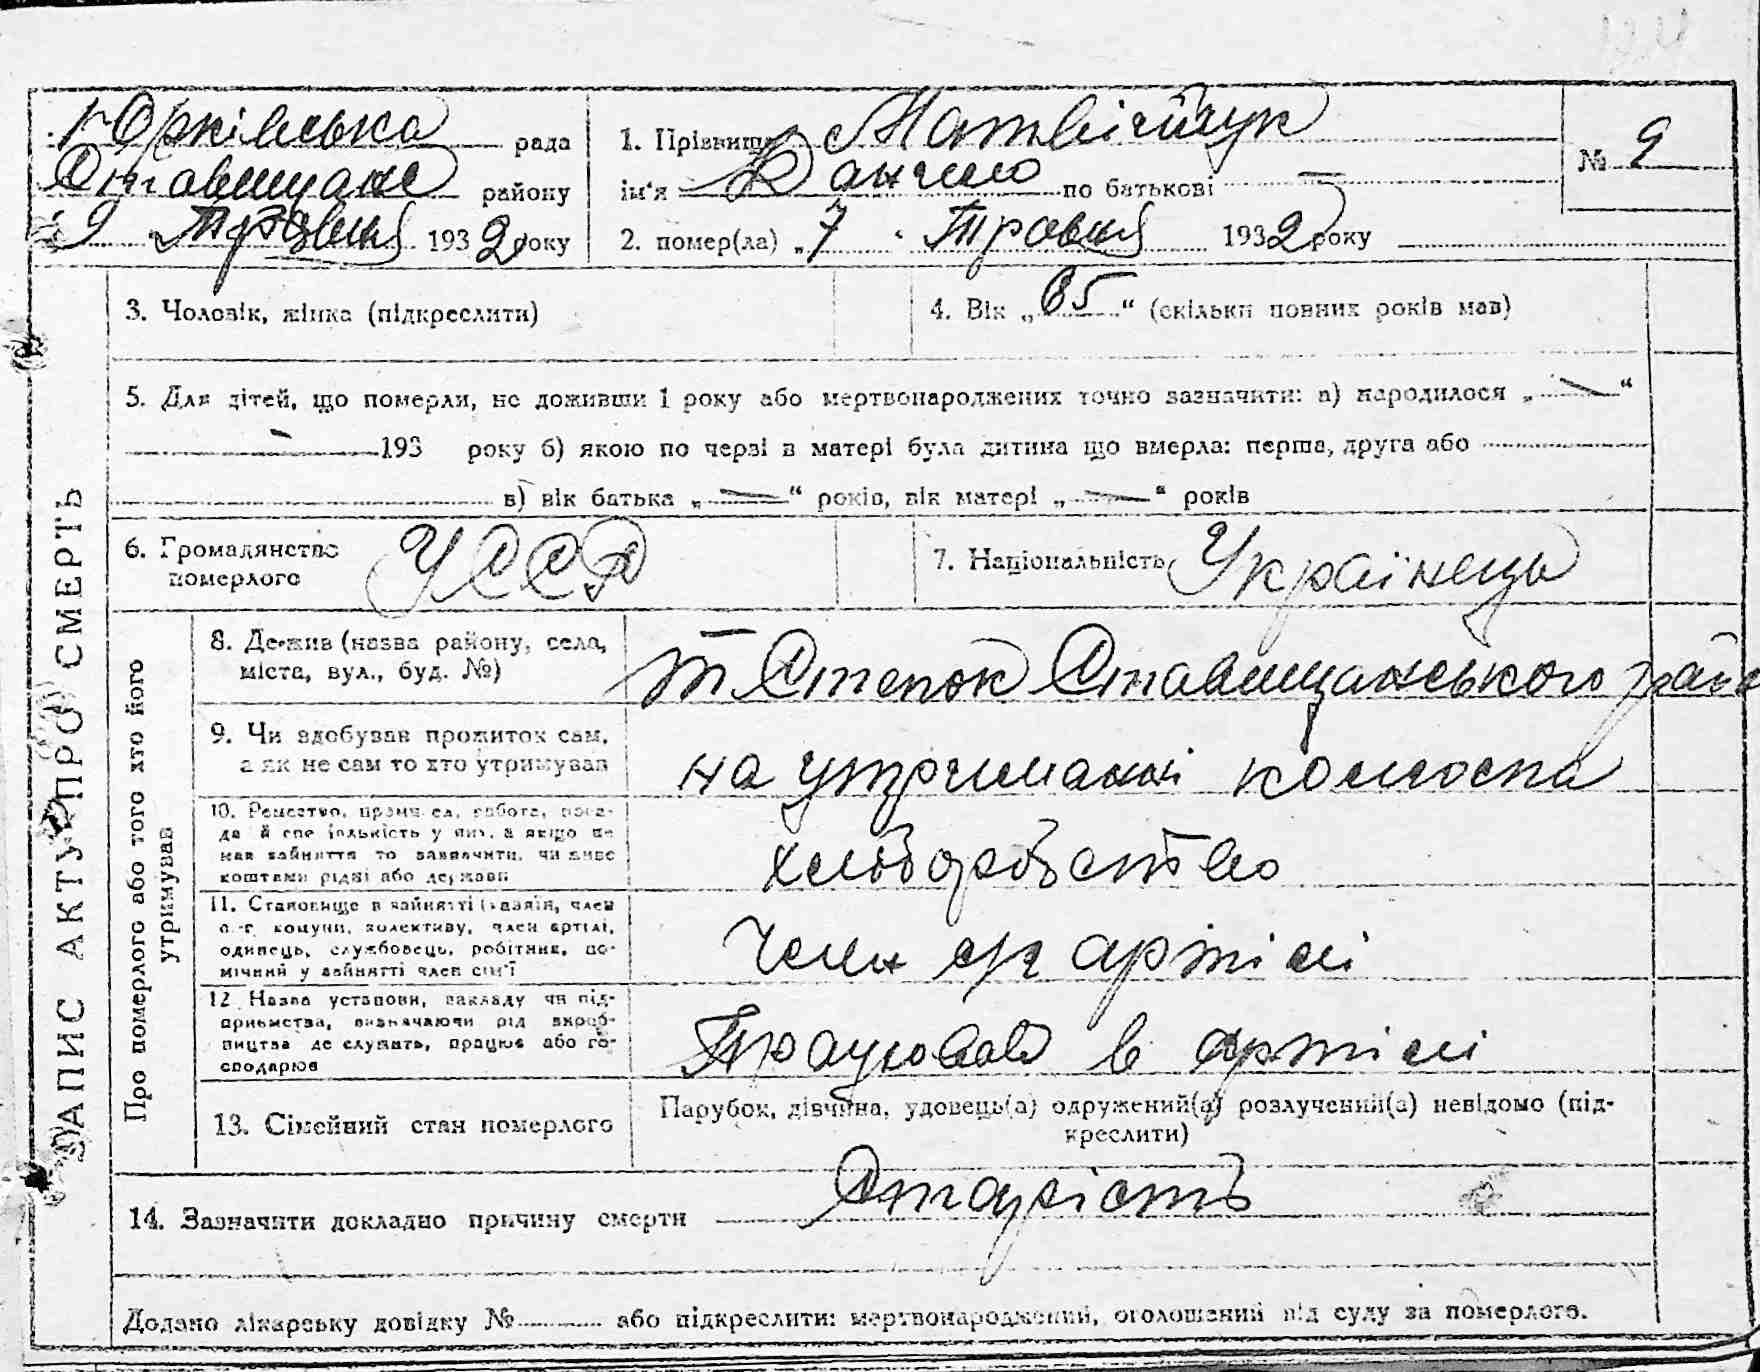 Юрківська рада
Ставищанс району
9 Травня 1932 року
1. Прізвище Матвійчук
ім'я Данило по батькові —
2. помер(ла) „7 " Травня 1932 року
№ 9
3. Чоловік, жінка (підкреслити)
4. Вік „65" (скільки повних років мав)
5. Для дітей, що померли, не доживши 1 року або мертвонароджених точно зазначити: а) народилося „—"
— 193 року б) якою по черзі в матері була дитина що вмерла: перша, друга або
в) вік батька „—" років, вік матері „—" років
6. Громадянство померлого УССР
7. Національність Українець
ЗАПИС АКТУ ПРО СМЕРТЬ
Про померлого або того хто його утримував
8. Де жив (назва району, села,
міста, вул., буд. №)
Степок Ставищанського райо
9. Чи здобував прожиток сам,
а як не сам то хто утримував
на утриманні колгоспа
10. Ремество, промисел, робота, поса-
да й спеціяльність у них, а якщо не
мав зайняття то зазначити, чи живе
коштами рідні або держави
хліборобство
11. Становище в зайнятті (хазяїн, член
с.-г. комуни, колективу, член артілі,
одинець, службовець, робітник, по-
мічний у зайнятті член сім'ї
Член с/г артілі
12. Назва установи, закладу чи під-
приємства, визначаючи рід вироб-
ництва де служить, працює або го-
сподарює
Працював в артілі
13. Сімейний стан померлого
Парубок, дівчина, удовець(а) одружений(а) розлучений(а) невідомо (під-
креслити)
14. Зазначити докладно причину смерти Старість
Додано лікарську довідку № або підкреслити: мертвонароджений, оголошений від суду за померлого.